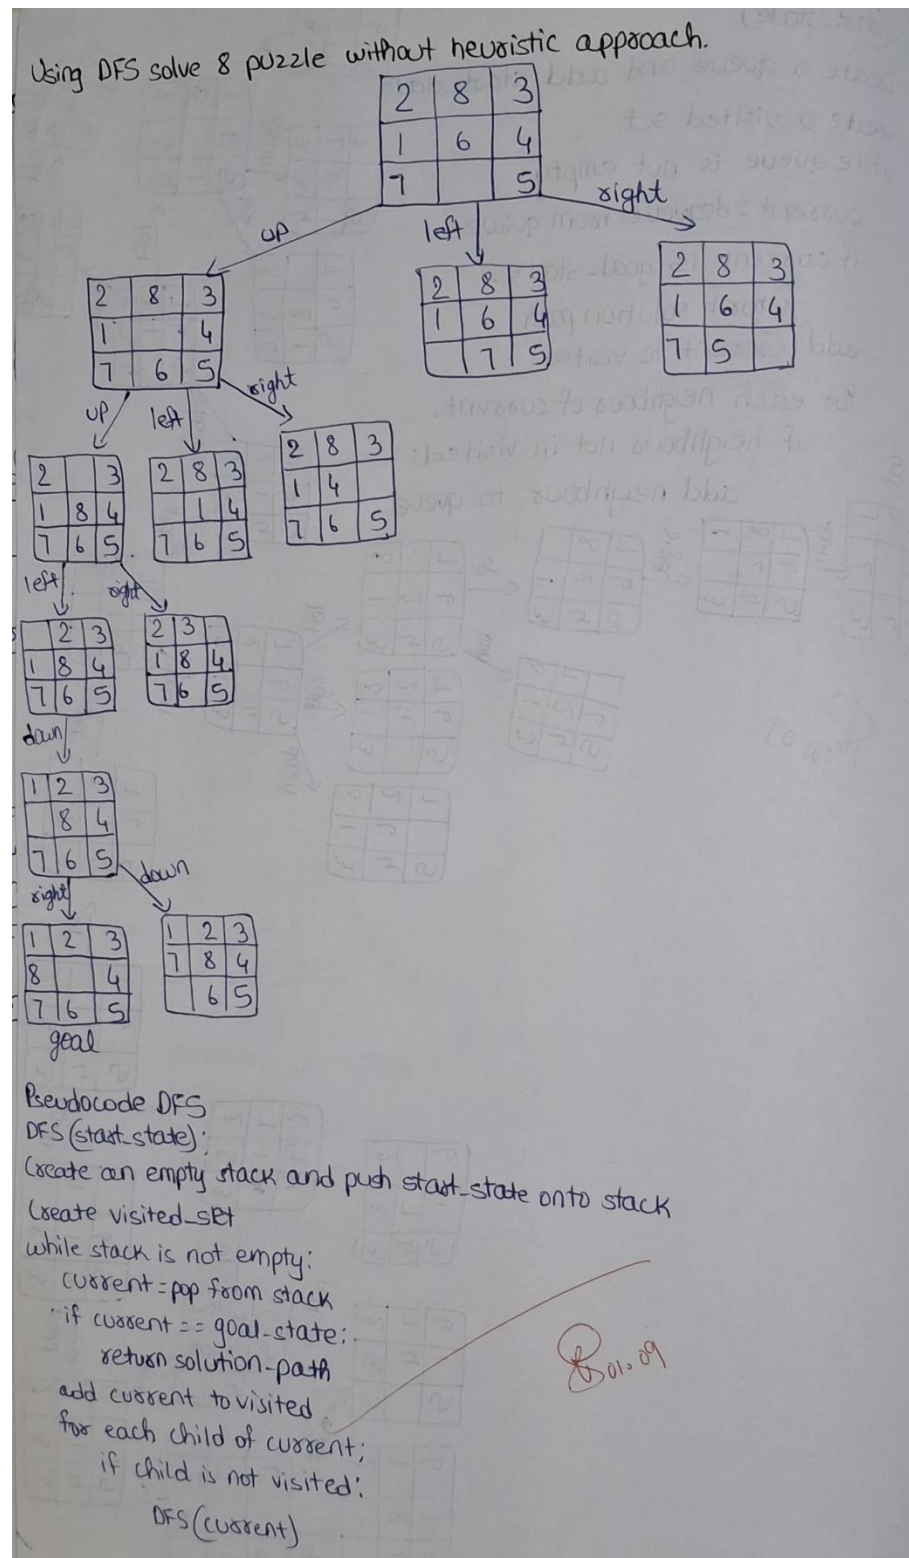 Using DFS solve 8 puzzle without heuristic approach.
2 8 3
1 6 4
7 5
up left right
2 8 3
1 4
7 6 5
2 8 3
1 6 4
7 5
2 8 3
1 6 4
7 5
up left right
2 3
1 8 4
7 6 5
2 8 3
1 4
7 6 5
2 8 3
1 4
7 6 5
left right
2 3
1 8 4
7 6 5
2 3
1 8 4
7 6 5
down
1 2 3
8 4
7 6 5
right down
1 2 3
8 4
7 6 5
1 2 3
7 8 4
6 5
goal
Pseudocode DFS
DFS(start_state):
Create an empty stack and push start_state onto stack
Create visited_set
while stack is not empty:
current=pop from stack
if current == goal_state:
return solution-path
add current to visited
for each child of current;
if child is not visited:
DFS(current)
01.09